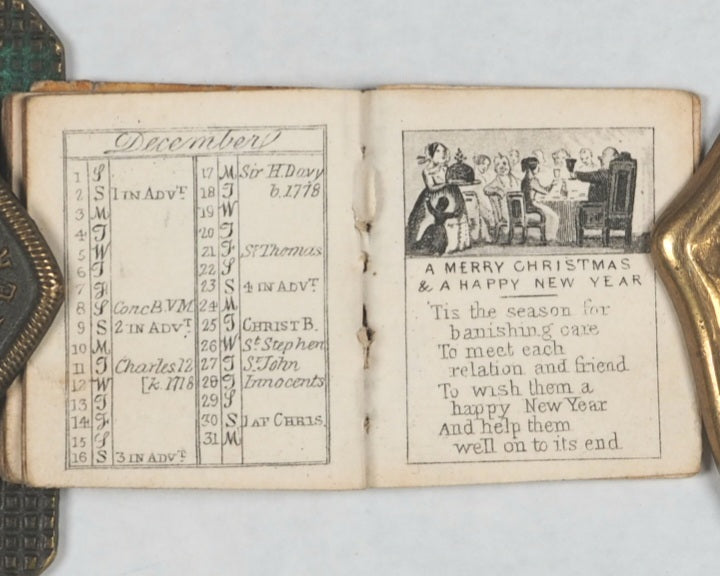 December
1 S
2 S 1 IN ADVT
3 M
4 T
5 W
6 T
7 F
8 S Conc B.V M.
9 S 2 IN ADVT
10 M
11 T Charles 12
12 W [k. 1718
13 T
14 F
15 S
16 S 3 IN ADVT
17 M Sir H Davy
18 T b. 1778
19 W
20 T
21 F St Thomas
22 S
23 S 4 IN ADVT
24 M
25 T CHRIST B.
26 W St Stephen
27 T St John
28 T Innocents
29 S
30 S 1 AF CHRIS.
31 M
A MERRY CHRISTMAS
& A HAPPY NEW YEAR
'Tis the season for
banishing care
To meet each
relation and friend
To wish them a
happy New Year
And help them
well on to its end.